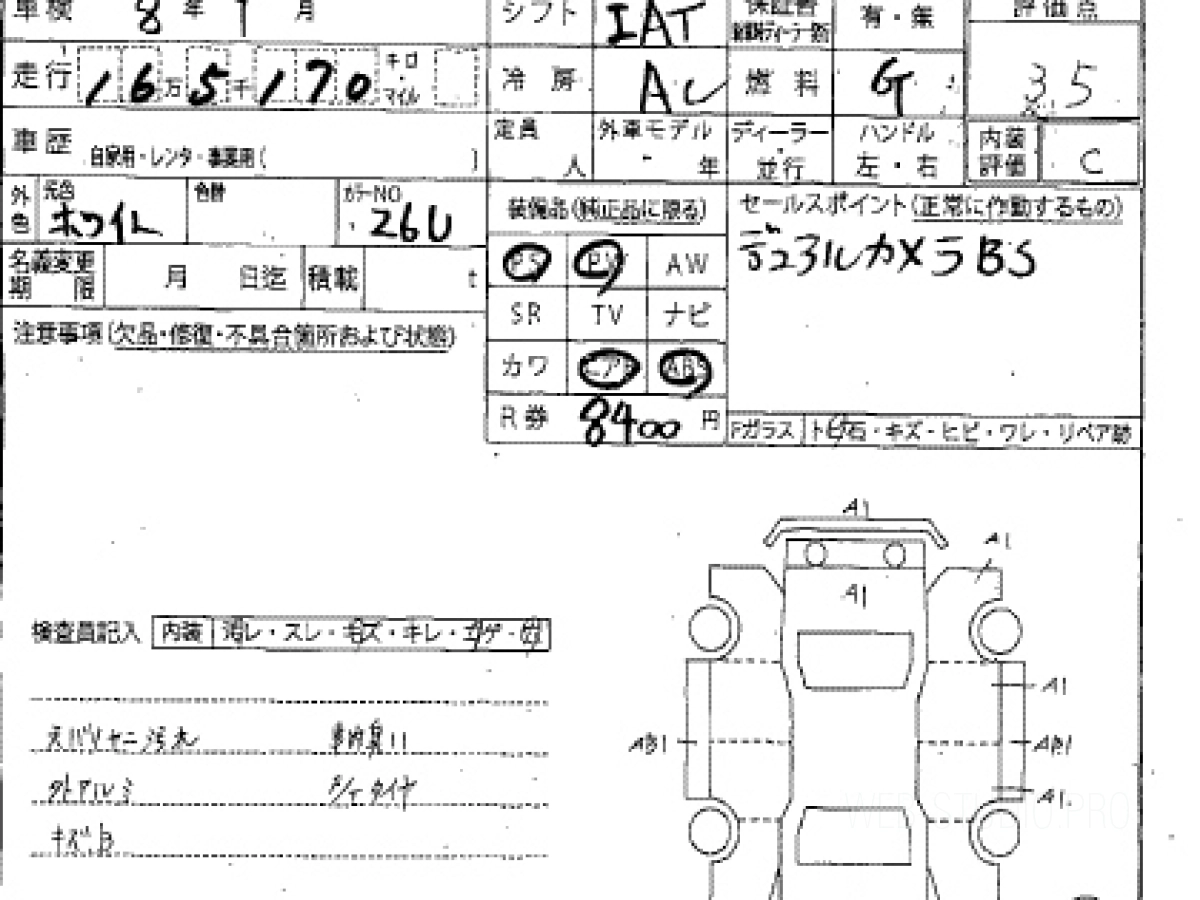 車検 8 年 1 月
シフト IAT
保証書 有・無
評価点
走行 16 万 5 千 170 キロ・マイル
冷房 AC
燃料 G
3.5
車歴 自家用・レンタ・事業用(
定員 人
外車モデル 年
ディーラー・並行
ハンドル 左・右
内装評価 C
外色 元色 ホワイト
色替
カラーNO. 26U
装備品(純正品に限る)
セールスポイント(正常に作動するもの)
デュアルカメラBS
名義変更期限 月 日迄
積載 t
PS PW AW
SR TV ナビ
注意事項(欠品・修復・不具合箇所および状態)
カワ エアB ABS
R券 8400 円
Fガラス
キズ・ヒビ・ワレ・リペア跡
A1
A1
A1
検査員記入 内装
スレ
キレ
A1
AB1
AB1
外アルミ
タイヤ
A1
WEB-STUDIO.PRO